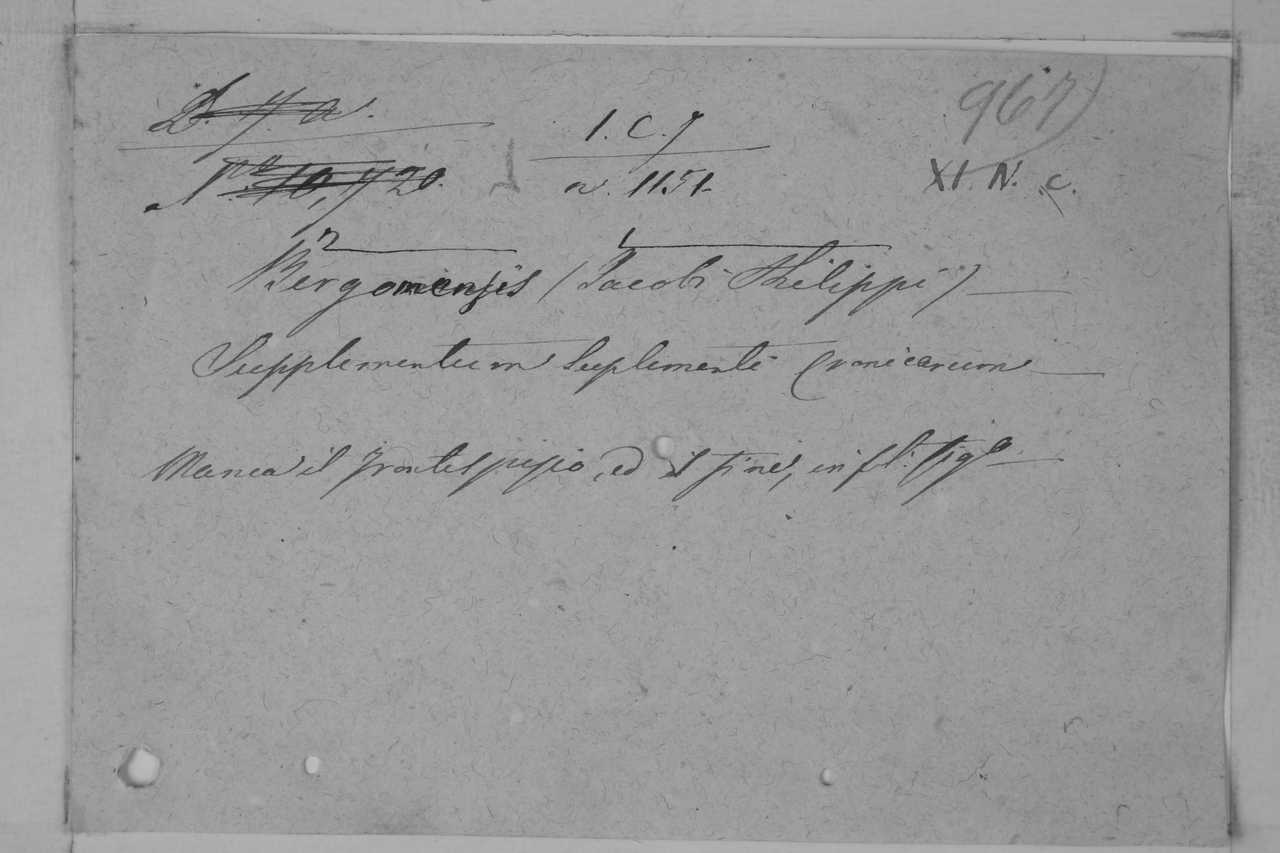 967
1. C. 7
a. 1151.
XI. N. c.
2 1
Bergomensis (Jacobi Philippi)
Supplementum suplementi Cronicarum
Manca il frontespizio, ed il fine, in fl. figo